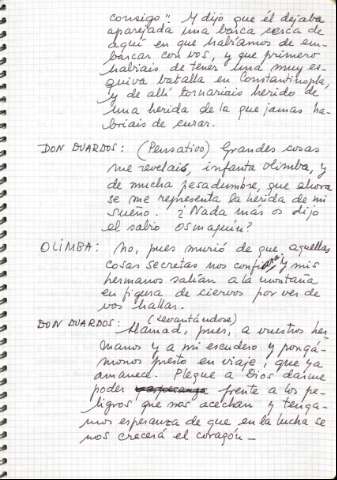 consigo". Y dijo que él dejaba
aparejada una barca cerca de
aquí en que habríamos de em-
barcar con vos, y que primero
habríais de tener una muy es-
quiva batalla en Constantinopla,
y de allí tornaríais herido de
una herida de la que jamás ha-
bríais de curar.
DON DUARDOS: (Pensativo) Grandes cosas
me reveláis, infanta Olimba, y
de mucha pesadumbre, que ahora
se me representa la herida de mi
sueño. ¿Nada más os dijo
el sabio Osmaquín?
OLIMBA: No, pues murió de que aquellas
cosas secretas nos confió, y mis
hermanos salían a la montaña
en figura de ciervos por ver de
vos hallar.
DON DUARDOS: (Levantándose)
Llamad, pues, a vuestros her
manos y a mi escudero y pongá-
monos presto en viaje, que ya
amanece. Plegue a Dios daime
poder frente a los pe-
ligros que nos acechan y tenga-
mos esperanza de que en la lucha se
nos crecerá el corazón_